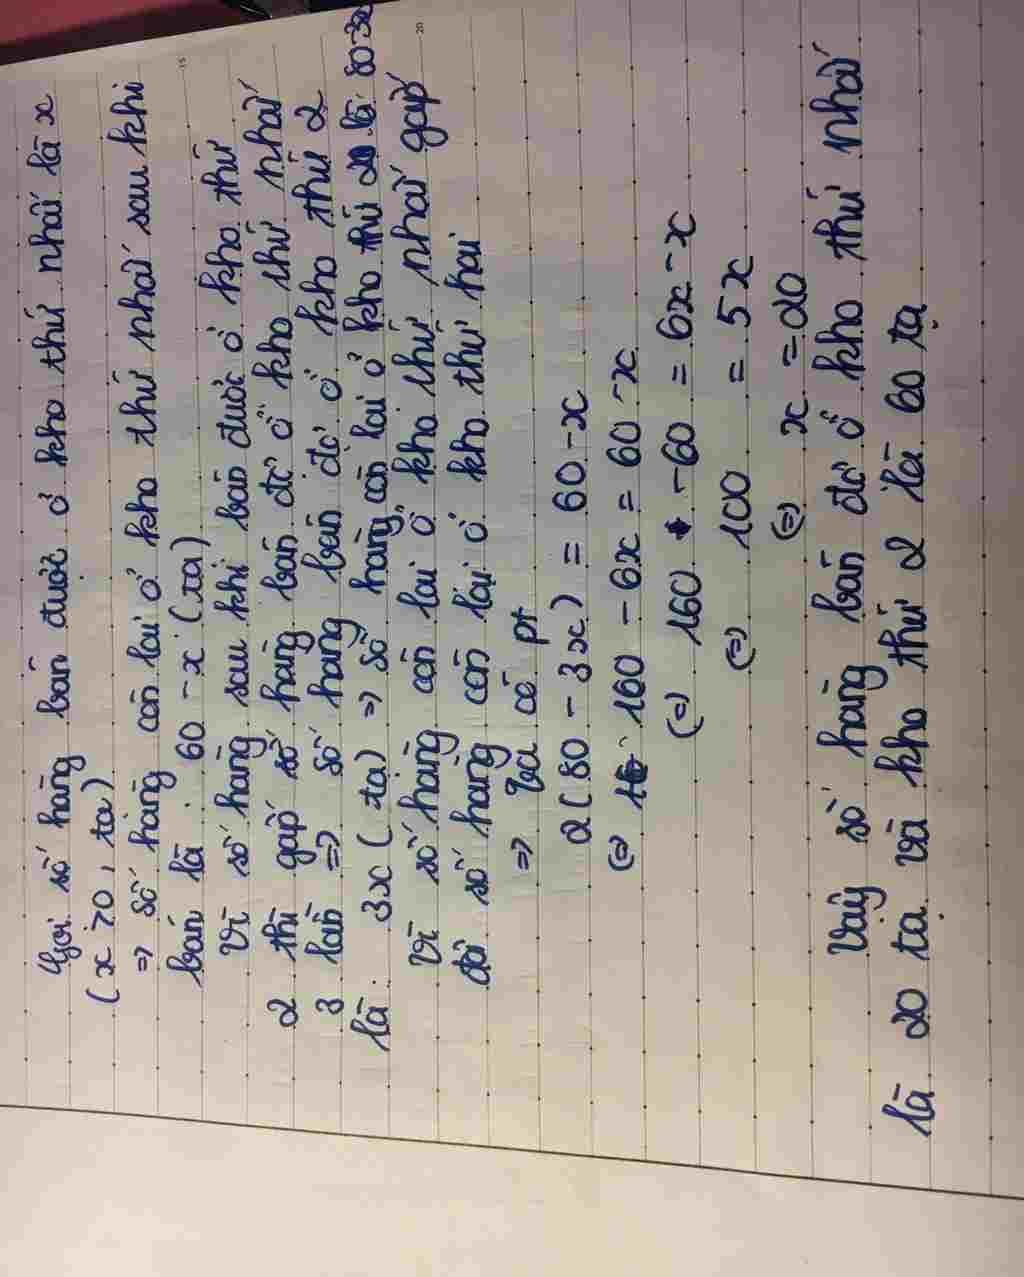 Gọi số hàng bán được ở kho thứ nhất là x
(x > 0, tạ)
=> Số hàng còn lại ở kho thứ nhất sau khi
bán là : 60 - x (tạ)
Vì số hàng sau khi bán được ở kho thứ
2 thì gấp số hàng bán đc ở kho thứ nhất
3 lần => Số hàng bán đc ở kho thứ 2
là : 3x (tạ) => Số hàng còn lại ở kho thứ 2 là: 80-3x
Vì số hàng còn lại ở kho thứ nhất gấp
đôi số hàng còn lại ở kho thứ hai
=> ta có pt
2(80 - 3x) = 60 - x
(=) 160 - 6x = 60 - x
(=) 160 - 60 = 6x - x
(=) 100 = 5x
(=) x = 20
Vậy số hàng bán đc ở kho thứ nhất
là 20 tạ và kho thứ 2 là 60 tạ
15
20